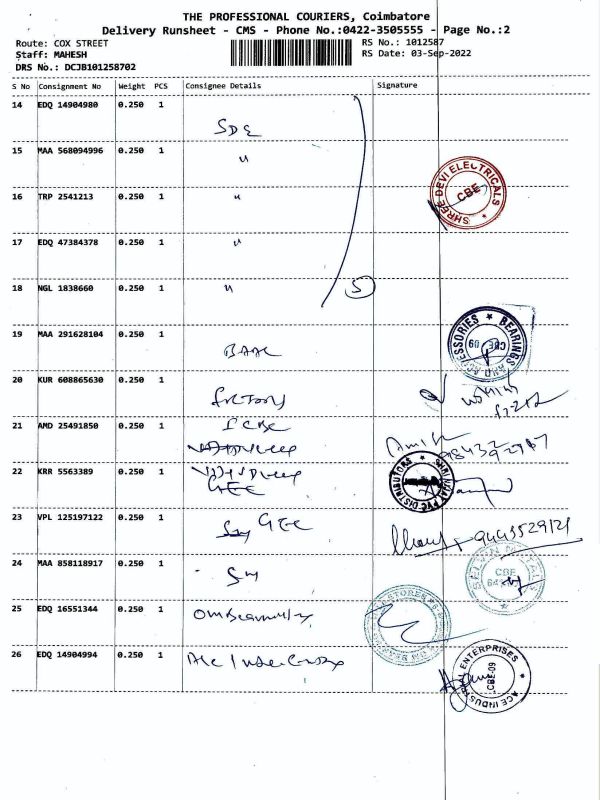 THE PROFESSIONAL COURIERS, Coimbatore
Delivery Runsheet - CMS - Phone No.:0422-3505555 - Page No.:2
Route: COX STREET
RS No.: 1012587
Staff: MAHESH
RS Date: 03-Sep-2022
DRS No.: DCJB101258702
S No Consignment No Weight PCS Consignee Details Signature
14 EDQ 14904980 0.250 1
SDE
15 MAA 568094996 0.250 1 "
SHREE DEVI ELECTRICALS
CBE
16 TRP 2541213 0.250 1 "
17 EDQ 47384378 0.250 1 "
18 NGL 1838660 0.250 1 " 5
19 MAA 291628104 0.250 1
BEARINGS AND ACCESSORIES
CBE 09
20 KUR 608865630 0.250 1
factory
21 AMD 25491850 0.250 1
Amit
22 KRR 5563389 0.250 1
GEE
PVC DISTRIBUTORS
23 VPL 125197122 0.250 1
GEE
9443529121
24 MAA 858118917 0.250 1
CBE
25 EDQ 16551344 0.250 1
STORES
26 EDQ 14904994 0.250 1
ACE INDUSTRIAL ENTERPRISES
CBE-09